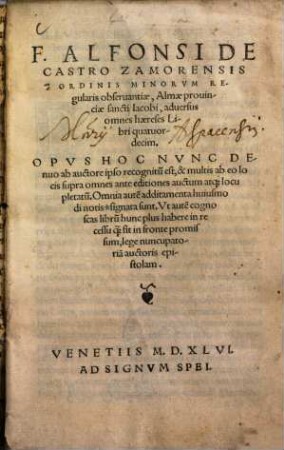 F. ALFONSI DE
CASTRO ZAMORENSIS
ORDINIS MINORVM RE
gularis obseruantiæ, Almæ prouin
ciæ sancti Iacobi, aduersus
omnes hæreses Li
bri quatuor
decim.
OPVS HOC NVNC DE
nuo ab auctore ipso recognitũ est, & multis ab eo lo
cis supra omnes ante editiones auctum atq; locu
pletatũ. Omnia autẽ additamenta huiusmo
di notis * signata sunt. Vt autẽ cogno
scas librũ hunc plus habere in re
cessu q̃ sit in fronte promis
sum, lege nuncupato
riã auctoris epi
stolam.
VENETIIS M. D. XLVI.
AD SIGNVM SPEI.